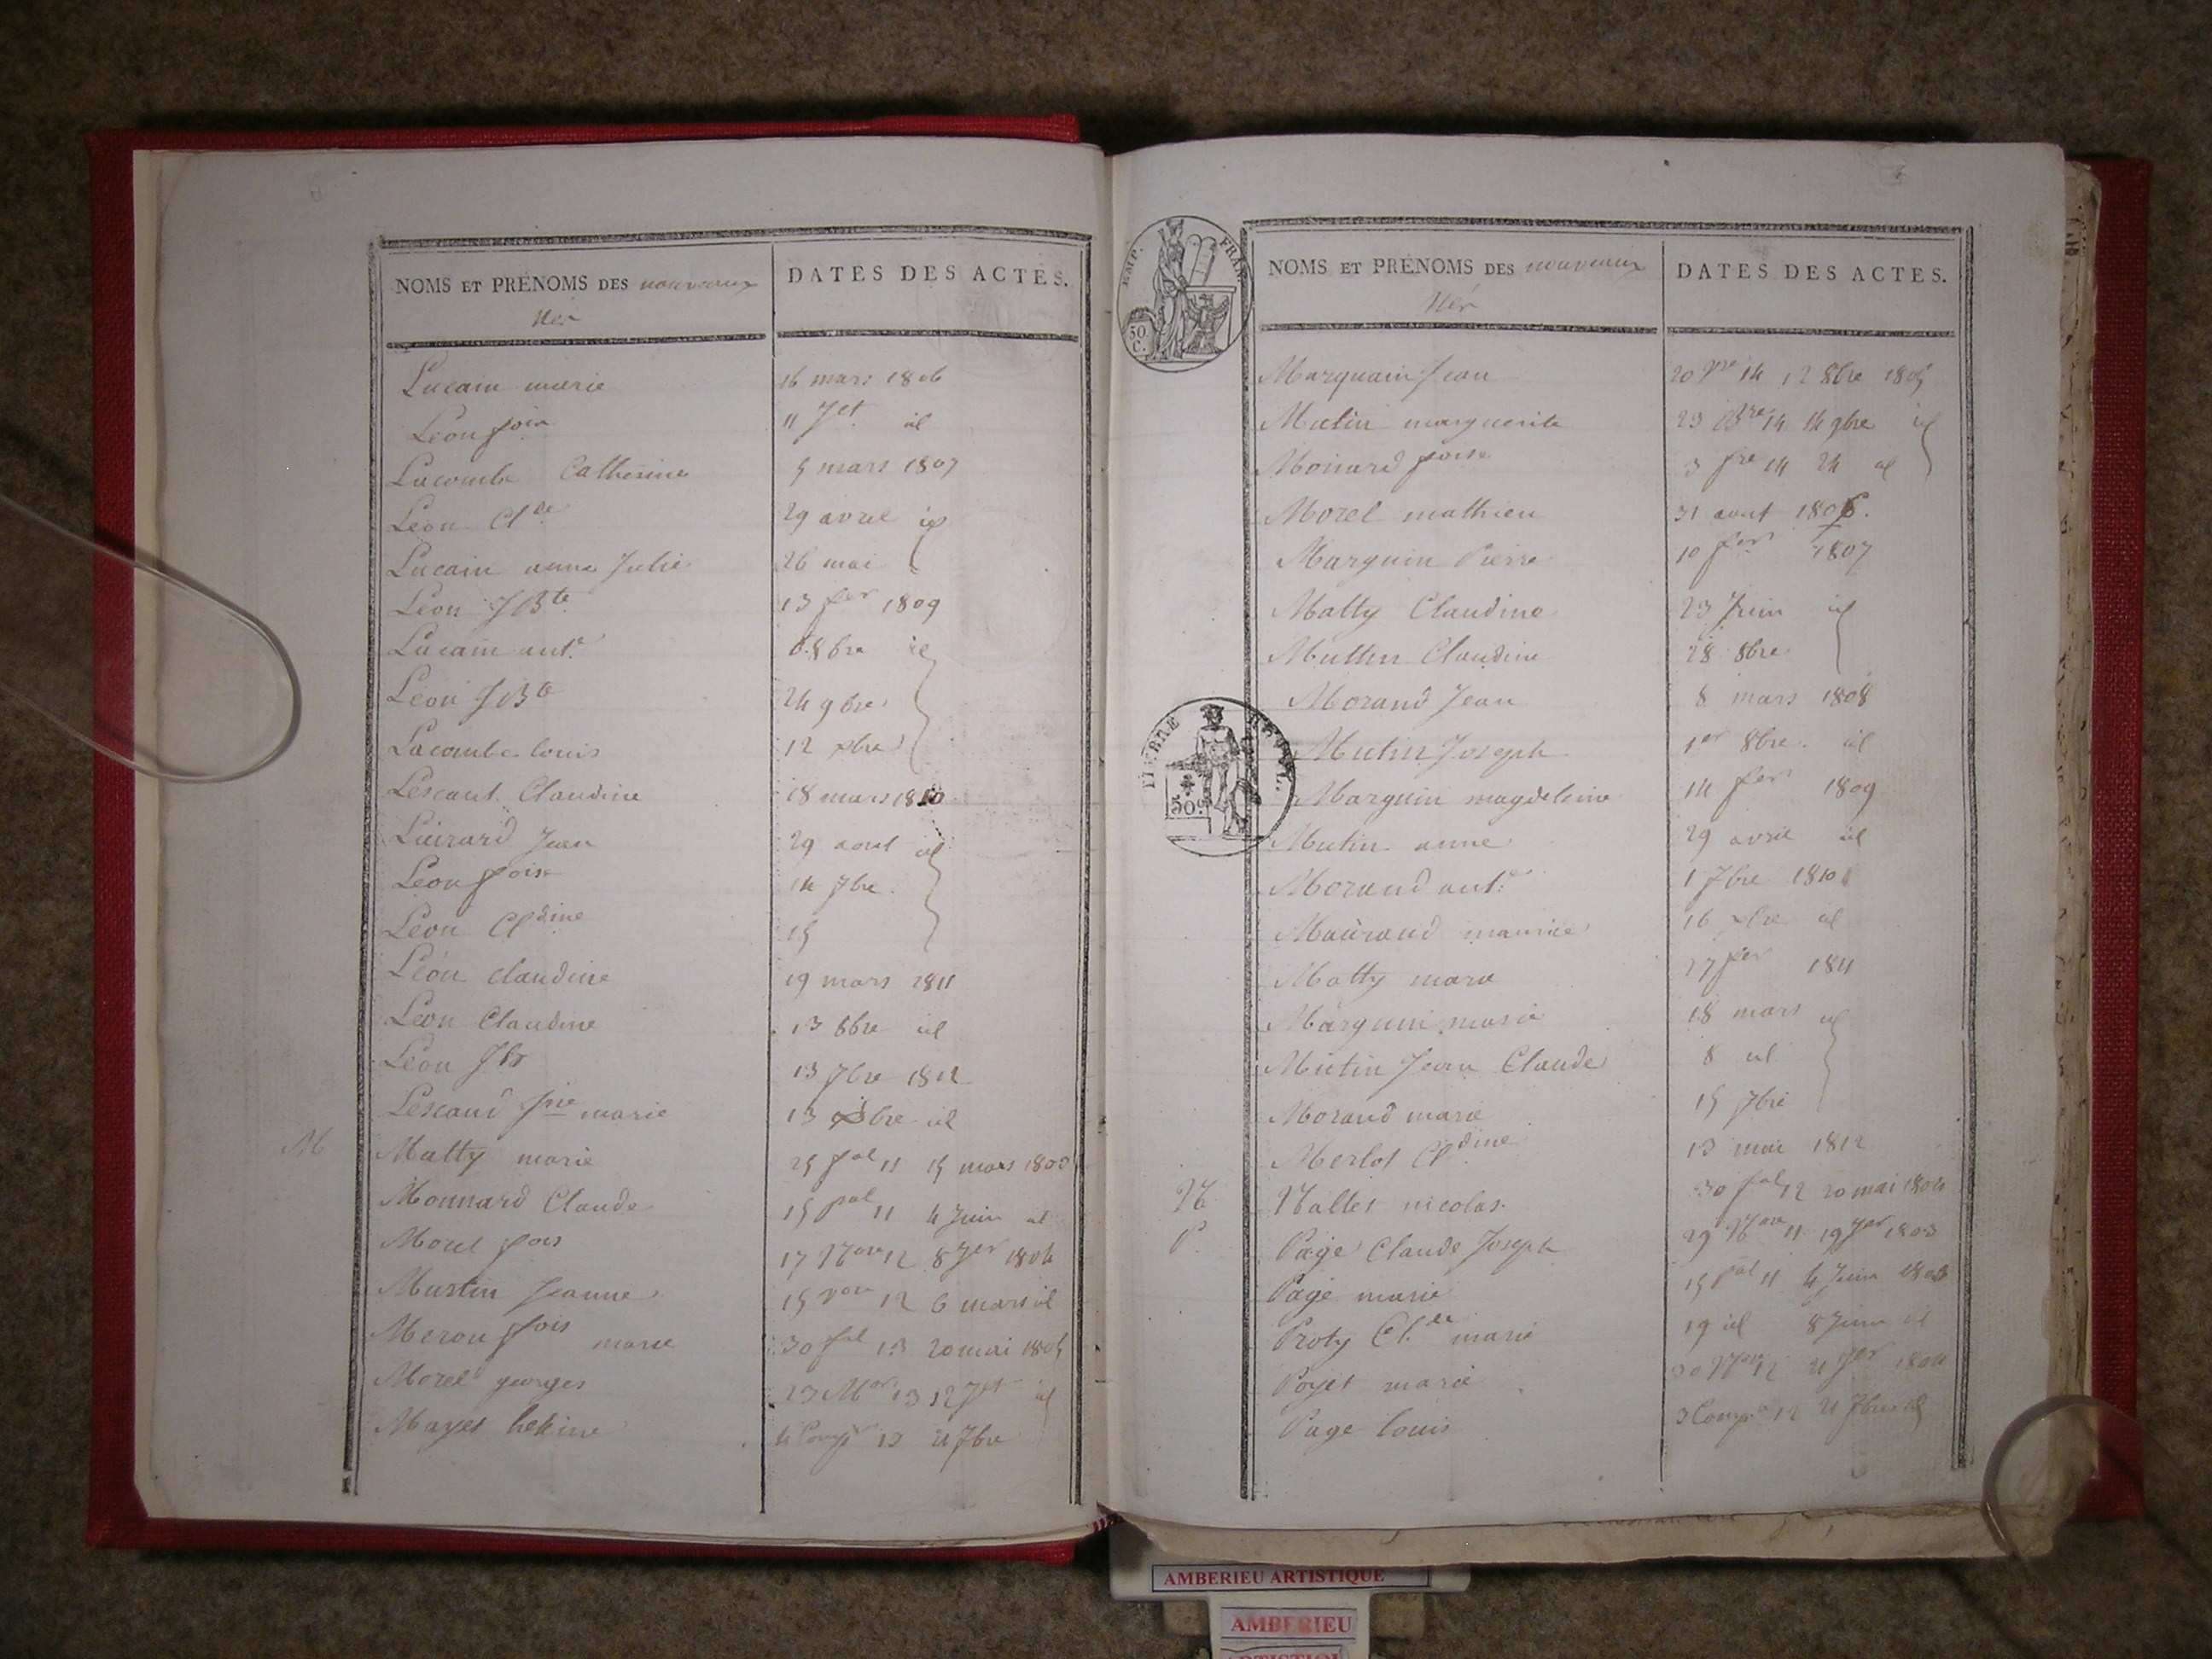 NOMS ET PRÉNOMS DES nouveaux
Nés
DATES DES ACTES.
Lucain marie 16 mars 1806
Léon fois 11 Jet id
Lacombe Catherine 5 mars 1807
Léon Clde 29 avril id
Lucain anne Julie 26 mai
Léon JBte 13 fer 1809
Lucain ant. 8bre id
Léon JBte 24 9bre
Lacombe louis 12 xbre
Lescaut Claudine 18 mars 1810
Luirard Jean 29 aout id
Léon foise 14 7bre
Léon Cldine 15
Léon claudine 19 mars 1811
Léon Claudine 13 8bre id
Léon 13 7bre 1812
Lescaud marie 13 bre id
M
Matty marie 25 11 15 mars 1803
Monnard Claude 15 pal 11 4 Juin id
Morel fois 17 12 8 Jer 1804
Martin Jeanne 15 12 6 mars id
Meron fois marie 30 fal 13 20 mai 1805
Morel georges 23 Mor 13 12 Jet id
Mayet 4 Comp 13 21 7bre
EMP. FRAN
50
C.
NOMS ET PRÉNOMS DES nouveaux
Nés
DATES DES ACTES.
Marquain Jean 20 14 12 8bre 1805
Mutin marguerite 23 14 14 9bre id
Monard foise 3 14 24 id
Morel mathieu 31 aout 1806.
Marguin Pierre 10 1807
Matty Claudine 23 Juin id
Muttin Claudine 28 8bre
Morand Jean 8 mars 1808
Mutin Joseph 1er 8bre. id
50.
Marguin magdeleine 14 1809
Mutin anne 29 avril id
Morand ant. 1 7bre 1810
Mairaud maurice 16 xbre id
Matty marie 27 fer 1811
Marguin marie 18 mars id
Mutin Jean Claude 8 id
Morand marie 15 7bre
Merlot Cldine 13 mai 1812
N
Nallet nicolas. 30 fal 12 20 mai 1804
P.
Page Claude Joseph 29 11 19 Jer 1803
Page marie 15 pal 11 4 Juin 1803
Proty Cl.de marie 19 id 8 Juin id
Poyet marie 30 12 21 Jer 1804
Page louis 3 Comp. 12 21 7bre id
AMBERIEU ARTISTIQUE
AMBERIEU